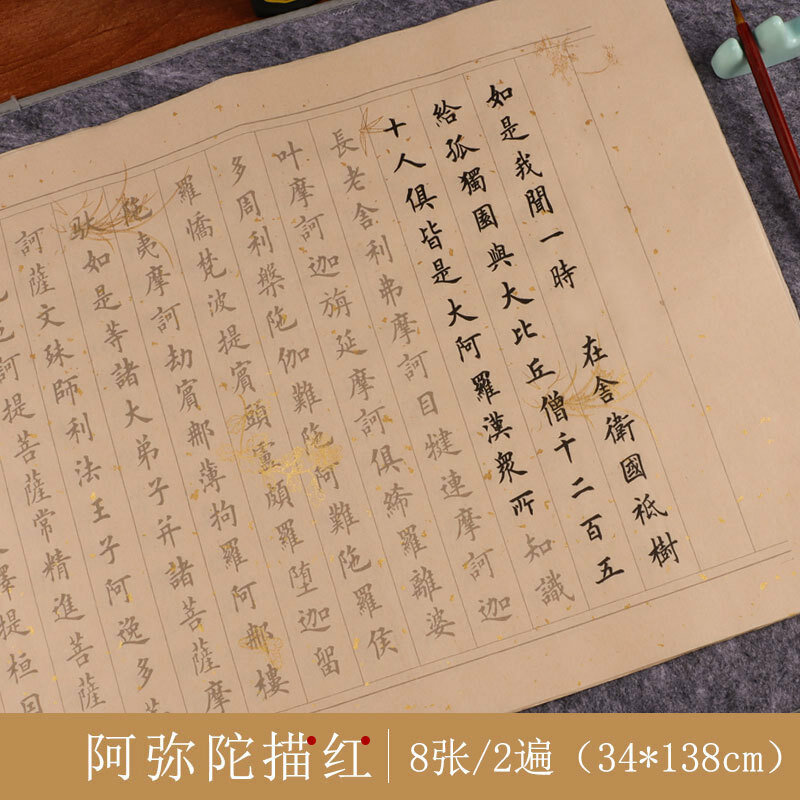 如是我聞一時 在舍衛國祗樹
給孤獨園與大比丘僧千二百五
十人俱皆是大阿羅漢眾所知識
長老舍利弗摩訶目犍連摩訶迦
叶摩訶迦旃延摩訶俱絺羅離婆
多周利槃陁伽難陁阿難陁羅侯
羅憍梵波提賓頭盧頗羅堕迦留
陁夷摩訶劫賓郍薄拘羅阿郍樓
馱如是等諸大弟子并諸菩薩摩
訶薩文殊師利法王子阿逸多菩
訶提菩薩常精進菩薩
釋提桓因
阿弥陀描红 8张/2遍（34*138cm）